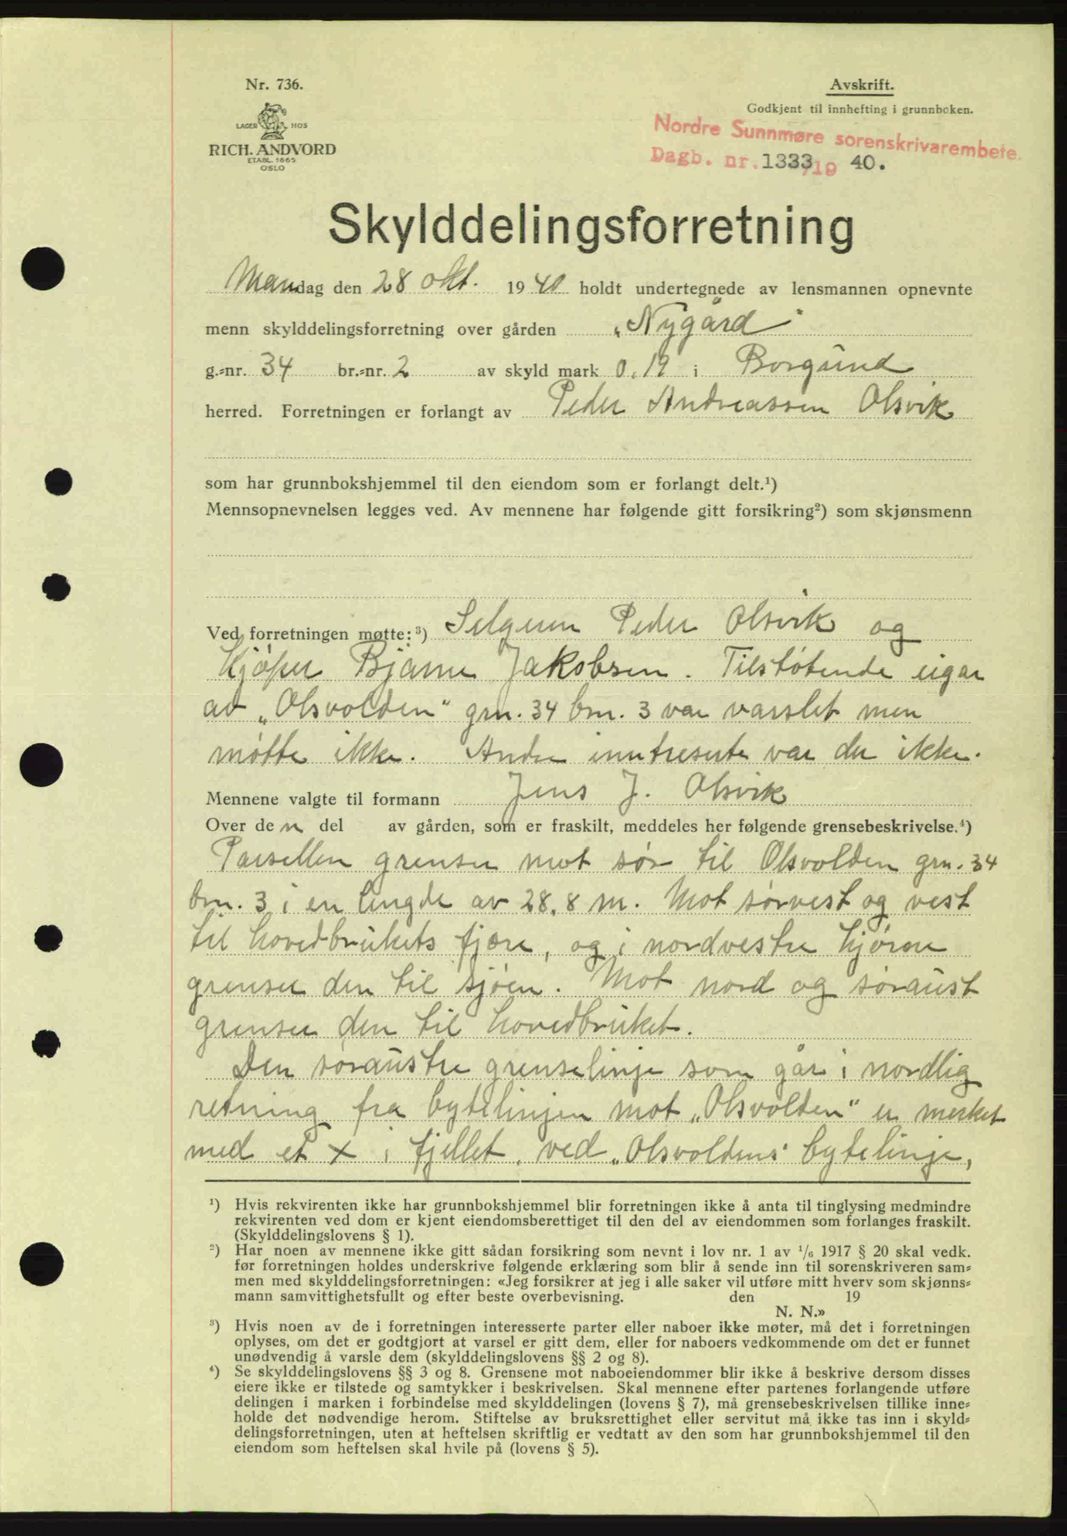 Nr. 736.
LAGER HOS
RICH. ANDVORD
ETABL. 1865
OSLO
Avskrift.
Godkjent til innhefting i grunnboken.
Nordre Sunnmøre sorenskrivarembete
Dagb. nr. 1333/19 40.
Skylddelingsforretning
Mandag den 28 okt. 1940 holdt undertegnede av lensmannen opnevnte
menn skylddelingsforretning over gården „Nygård"
g.-nr. 34 br.-nr. 2 av skyld mark 0,19 i Borgund
herred. Forretningen er forlangt av Peder Andreassen Olsvik
som har grunnbokshjemmel til den eiendom som er forlangt delt.¹)
Mennsopnevnelsen legges ved. Av mennene har følgende gitt forsikring²) som skjønsmenn
Ved forretningen møtte:³) Selgeren Peder Olsvik og
kjøper Bjarne Jakobsen. Tilstøtende eigar
av „Olsvolden" grn. 34 brn. 3 var varslet men
møtte ikke. Andre inntresente var der ikke.
Mennene valgte til formann Jens J. Olsvik
Over den del av gården, som er fraskilt, meddeles her følgende grensebeskrivelse.⁴)
Parsellen grenser mot sør til Olsvolden grn. 34
brn. 3 i en lengde av 28,8 m. Mot sørvest og vest
til hovedbrukets fjære, og i nordvestre hjørne
grenser den til sjøen. Mot nord og søraust
grenser den til hovedbruket.
Den søraustre grenselinje som går i nordlig
retning fra bytelinjen mot „Olsvolden" er merket
med et X i fjellet, ved „Olsvoldens" bytelinje,
¹) Hvis rekvirenten ikke har grunnbokshjemmel blir forretningen ikke å anta til tinglysing medmindre
rekvirenten ved dom er kjent eiendomsberettiget til den del av eiendommen som forlanges fraskilt.
(Skylddelingslovens § 1).
²) Har noen av mennene ikke gitt sådan forsikring som nevnt i lov nr. 1 av ¹/₆ 1917 § 20 skal vedk.
før forretningen holdes underskrive følgende erklæring som blir å sende inn til sorenskriveren sam-
men med skylddelingsforretningen: «Jeg forsikrer at jeg i alle saker vil utføre mitt hverv som skjønns-
mann samvittighetsfullt og efter beste overbevisning. den 19
N. N.»
³) Hvis noen av de i forretningen interesserte parter eller naboer ikke møter, må det i forretningen
oplyses, om det er godtgjort at varsel er gitt dem, eller for naboers vedkommende om det er funnet
unødvendig å varsle dem (skylddelingslovens §§ 2 og 8).
⁴) Se skylddelingslovens §§ 3 og 8. Grensene mot naboeiendommer blir ikke å beskrive dersom disses
eiere ikke er tilstede og samtykker i beskrivelsen. Skal mennene efter partenes forlangende utføre
delingen i marken i forbindelse med skylddelingen (lovens § 7), må grensebeskrivelsen tillike inne-
holde det nødvendige herom. Stiftelse av bruksrettighet eller servitut må ikke tas inn i skyld-
delingsforretningen, uten at heftelsen skriftlig er vedtatt av den som har grunnbokshjemmel til den
eiendom som heftelsen skal hvile på (lovens § 5).